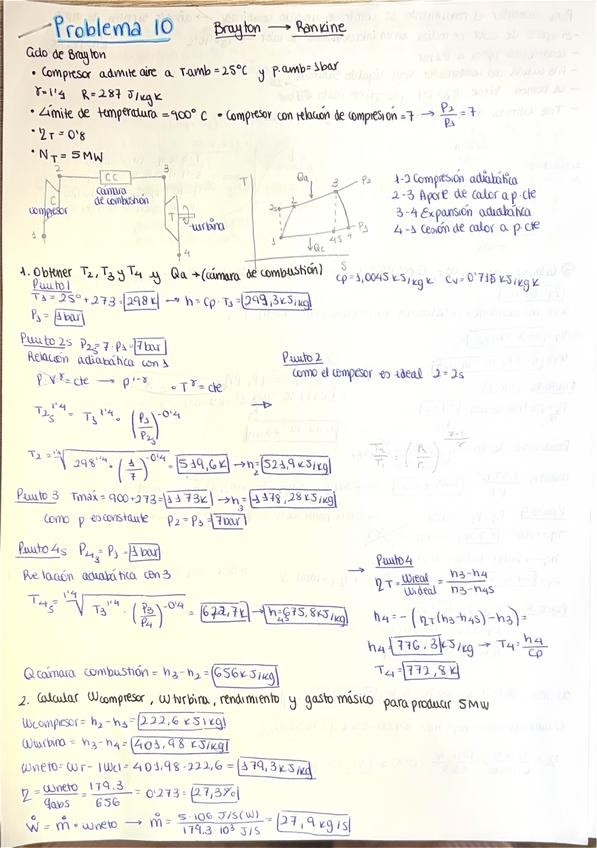 Problema 10 Brayton → Rankine
Ciclo de Brayton
• Compresor admite aire a Tamb = 25°C y p.amb = 1bar
γ = 1'4 R = 287 J/kg k
• Límite de temperatura = 900°C • Compresor con relación de compresión = 7 → P2/P1 = 7
• ηT = 0'8
• NT = 5MW
2 CC 3
cámara de combustión
C
compresor
T
turbina
1
4
T Qa P2
3
2s 2
P1
1 4s 4
Qc
S
1-2 Compresión adiabática
2-3 Aporte de calor a p.cte
3-4 Expansión adiabática
4-1 Cesión de calor a p.cte
1. Obtener T2, T3 y T4 y Qa → (cámara de combustión) cp = 1,0045 kJ/kg k cv = 0'718 kJ/kg k
Punto 1
T1 = 25° + 273 = 298 k → h = cp · T1 = 299,3 kJ/kg
P1 = 1bar
Punto 2s P2s = 7 · P1 = 7bar
Relación adiabática con 1
P · V^γ = cte → p^1-γ · T^γ = cte
T2s^1'4 = T1^1'4 · (P1/P2s)^-0'4
T2 = 1'4√(298^1'4 · (1/7)^-0'4) = 519,6 k → h2 = 521,9 kJ/kg
Punto 2
como el compesor es ideal 2 = 2s
Punto 3 Tmáx = 900 + 273 = 1173k → h3 = 1178,28 kJ/kg
como p es constante P2 = P3 = 7bar
Punto 4s P4s = P1 = 1bar
Relación adiabática con 3
T4s = 1'4√(T3^1'4 · (P3/P4)^-0'4) = 672,7k → h4s = 675,8 kJ/kg
→ Punto 4
ηT = Wreal/Wideal = h3-h4/h3-h4s
h4 = -(ηT(h3-h4s)-h3) =
h4 = 776,3 kJ/kg → T4 = h4/cp
T4 = 772,8k
Qcámara combustión = h3-h2 = 656 kJ/kg
2. Calcular Wcompresor, Wturbina, rendimiento y gasto másico para producir 5MW
Wcompresor = h2-h1 = 222,6 kJ/kg
Wturbina = h3-h4 = 401,98 kJ/kg
Wneto = WT - |Wc| = 401,98 - 222,6 = 179,3 kJ/kg
η = Wneto/qabs = 179.3/656 = 0'273 = 27,3%
Ẇ = ṁ · Wneto → ṁ = 5·10⁶ J/s (W)/179.3·10³ J/s = 27,9 kg/s